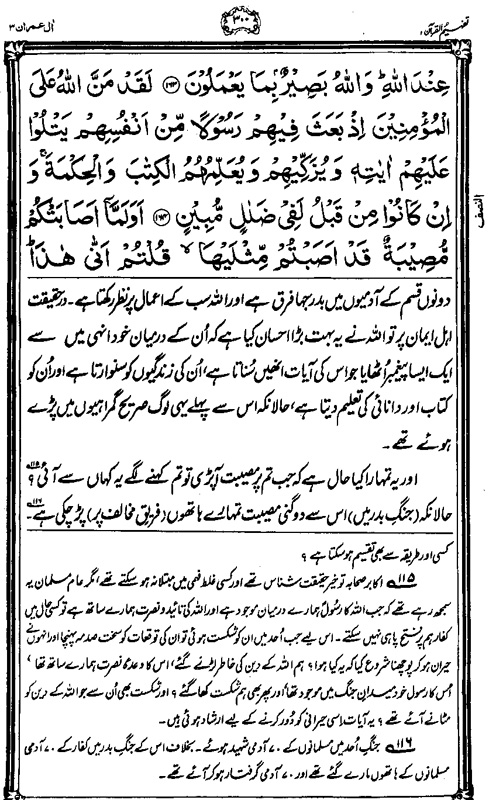 تفہیم القرآن ۱
۳۰۰
اٰل عمران ۳
عِنْدَ اللّٰهِ ؕ وَاللّٰهُ بَصِيْرٌۢ بِمَا يَعْمَلُوْنَ ﴿۱۶۳﴾ لَقَدْ مَنَّ اللّٰهُ عَلَى
الْمُؤْمِنِيْنَ اِذْ بَعَثَ فِيْهِمْ رَسُوْلًا مِّنْ اَنْفُسِهِمْ يَتْلُوْا
عَلَيْهِمْ اٰيٰتِهٖ وَيُزَكِّيْهِمْ وَيُعَلِّمُهُمُ الْكِتٰبَ وَالْحِكْمَةَ ۚ وَ
اِنْ كَانُوْا مِنْ قَبْلُ لَفِيْ ضَلٰلٍ مُّبِيْنٍ ﴿۱۶۴﴾ اَوَلَمَّآ اَصَابَتْكُمْ
مُّصِيْبَةٌ قَدْ اَصَبْتُمْ مِّثْلَيْهَا ۙ قُلْتُمْ اَنّٰى هٰذَا ؕ
النصف
دونوں قسم کے آدمیوں میں بدرجہا فرق ہے اور اللہ سب کے اعمال پر نظر رکھتا ہے۔ درحقیقت
اہل ایمان پر تو اللہ نے یہ بہت بڑا احسان کیا ہے کہ اُن کے درمیان خود انہی میں سے
ایک ایسا پیغمبر اُٹھایا جو اس کی آیات انھیں سُناتا ہے، اُن کی زندگیوں کو سنوارتا ہے اور اُن کو
کتاب اور دانائی کی تعلیم دیتا ہے، حالانکہ اس سے پہلے یہی لوگ صریح گمراہیوں میں پڑے
ہوئے تھے۔
اور یہ تمہارا کیا حال ہے کہ جب تم پر مصیبت آپڑی تو تم کہنے لگے یہ کہاں سے آئی؟ ۱۱۵
حالانکہ (جنگِ بدر میں) اس سے دوگنی مصیبت تمہارے ہاتھوں (فریق مخالف پر) پڑ چکی ہے۔ ۱۱۶
کسی اور طریقہ سے بھی تقسیم ہو سکتا ہے؟
۱۱۵ اکابر صحابہ تو خیر حقیقت شناس تھے اور کسی غلط فہمی میں مبتلا نہ ہو سکتے تھے، مگر عام مسلمان یہ
سمجھ رہے تھے کہ جب اللہ کا رسولؐ ہمارے درمیان موجود ہے اور اللہ کی تائید و نصرت ہمارے ساتھ ہے تو کسی حال میں
کفار ہم پر فتح پا ہی نہیں سکتے۔ اس لیے جب اُحد میں ان کو شکست ہوئی تو ان کی توقعات کو سخت صدمہ پہنچا اور انہوں نے
حیران ہو کر پوچھنا شروع کیا کہ یہ کیا ہوا؟ ہم اللہ کے دین کی خاطر لڑنے گئے، اس کا وعدۂ نصرت ہمارے ساتھ تھا،
اُس کا رسول خود میدانِ جنگ میں موجود تھا، اور پھر بھی ہم شکست کھا گئے؟ اور شکست بھی اُن سے جو اللہ کے دین کو
مٹانے آئے تھے؟ یہ آیات اِسی حیرانی کو دُور کرنے کے لیے ارشاد ہوئی ہیں۔
۱۱۶ جنگِ اُحد میں مسلمانوں کے ۷۰ آدمی شہید ہوئے۔ بخلاف اس کے جنگِ بدر میں کفار کے ۷۰ آدمی
مسلمانوں کے ہاتھوں مارے گئے تھے اور ۷۰ آدمی گرفتار ہو کر آئے تھے۔